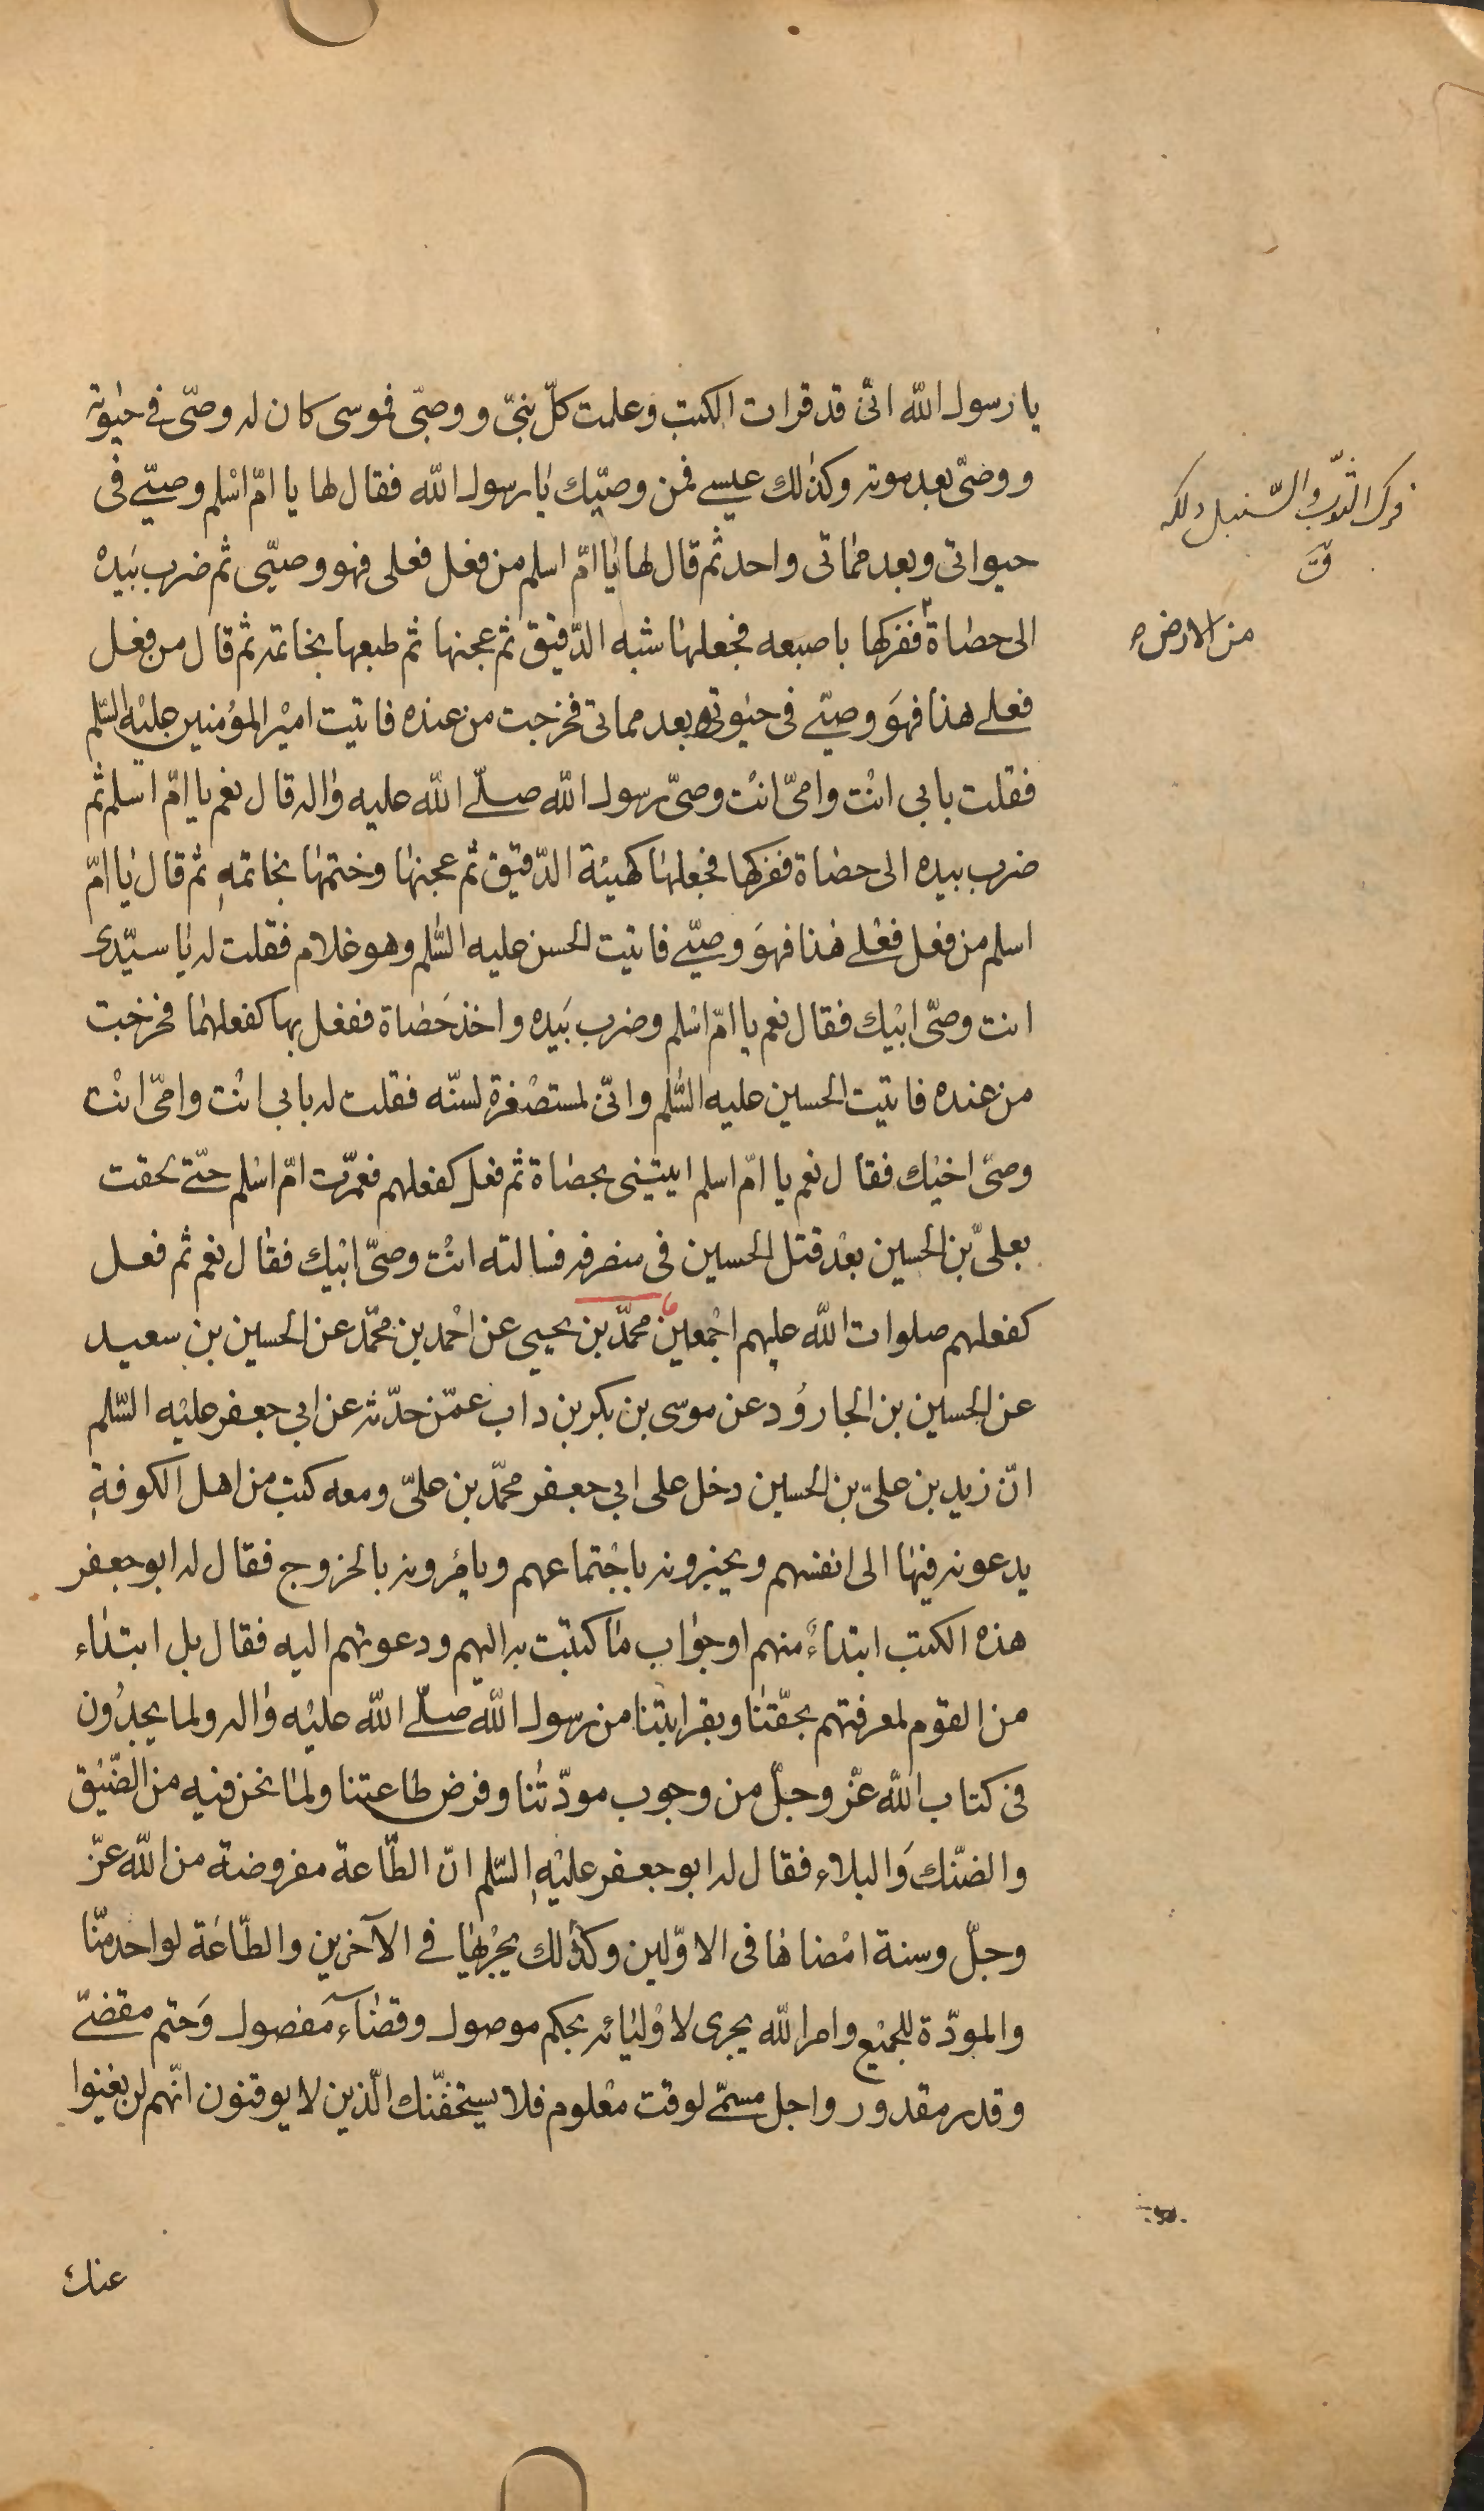 يا رسول الله انّى قد قرات الكتب و علمت كلّ نبىّ و وصىّ فموسى كان له وصىّ فى حيوته
و وصىّ بعد موته وكذلك عيسى فمن وصيّك يا رسول الله فقال لها يا امّ اسلم وصيّى فى
حيواتى وبعد مماتى واحد ثم قال لها يا امّ اسلم من فعل فعلى فهو وصيّى ثم ضرب بيده
الى حصاة ففركها باصبعه فجعلها شبه الدّقيق ثم عجنها ثم طبعها بخاتمه ثم قال من فعل
فعلى هذا فهو وصيّى فى حيوتى وبعد مماتى فخرجت من عنده فاتيت امير المؤمنين عليه السّلم
فقلت بابى انت وامّى انت وصىّ رسول الله صلّى الله عليه واله قال نعم يا امّ اسلم ثم
ضرب بيده الى حصاة ففركها فجعلها كهيئة الدّقيق ثم عجنها وختمها بخاتمه ثم قال يا امّ
اسلم من فعل فعلى هذا فهو وصيّى فاتيت الحسن عليه السّلم وهو غلام فقلت له يا سيّدى
انت وصىّ ابيك فقال نعم يا امّ اسلم وضرب بيده واخذ حصاة ففعل بها كفعلهما فخرجت
من عنده فاتيت الحسين عليه السّلم وانّى لمستصغرة لسنّه فقلت له بابى انت وامّى انت
وصىّ اخيك فقال نعم يا امّ اسلم ايتينى بحصاة ثم فعل كفعلهم فعمّرت امّ اسلم حتّى لحقت
بعلىّ بن الحسين بعد قتل الحسين فى منصرفه فسالته انت وصىّ ابيك فقال نعم ثم فعل
كفعلهم صلوات الله عليهم اجمعين محمّد بن يحيى عن احمد بن محمّد عن الحسين بن سعيد
عن الحسين بن الجارود عن موسى بن بكر بن داب عمّن حدّثه عن ابى جعفر عليه السّلم
انّ زيد بن علىّ بن الحسين دخل على ابى جعفر محمّد بن علىّ ومعه كتب من اهل الكوفة
يدعونه فيها الى انفسهم ويخبرونه باجتماعهم ويامرونه بالخروج فقال له ابو جعفر
هذه الكتب ابتداءً منهم او جواب ما كتبت به اليهم ودعوتهم اليه فقال بل ابتداء
من القوم لمعرفتهم بحقّنا وبقرابتنا من رسول الله صلّى الله عليه واله ولما يجدون
فى كتاب الله عزّ وجلّ من وجوب مودّتنا وفرض طاعتنا ولما نحن فيه من الضّيق
والضّنك والبلاء فقال له ابو جعفر عليه السّلم انّ الطّاعة مفروضة من الله عزّ
وجلّ وسنة امضاها فى الاوّلين وكذلك يجريها فى الآخرين والطّاعة لواحد منّا
والمودّة للجميع وامر الله يجرى لاوليائه بحكم موصول وقضاء مفصول وحتم مقضىّ
وقدر مقدور واجل مسمّى لوقت معلوم فلا يستخفّنك الّذين لا يوقنون انّهم لن يغنوا
عنك
فرك الثوب والسّنبل دلكه
ق
من الارض